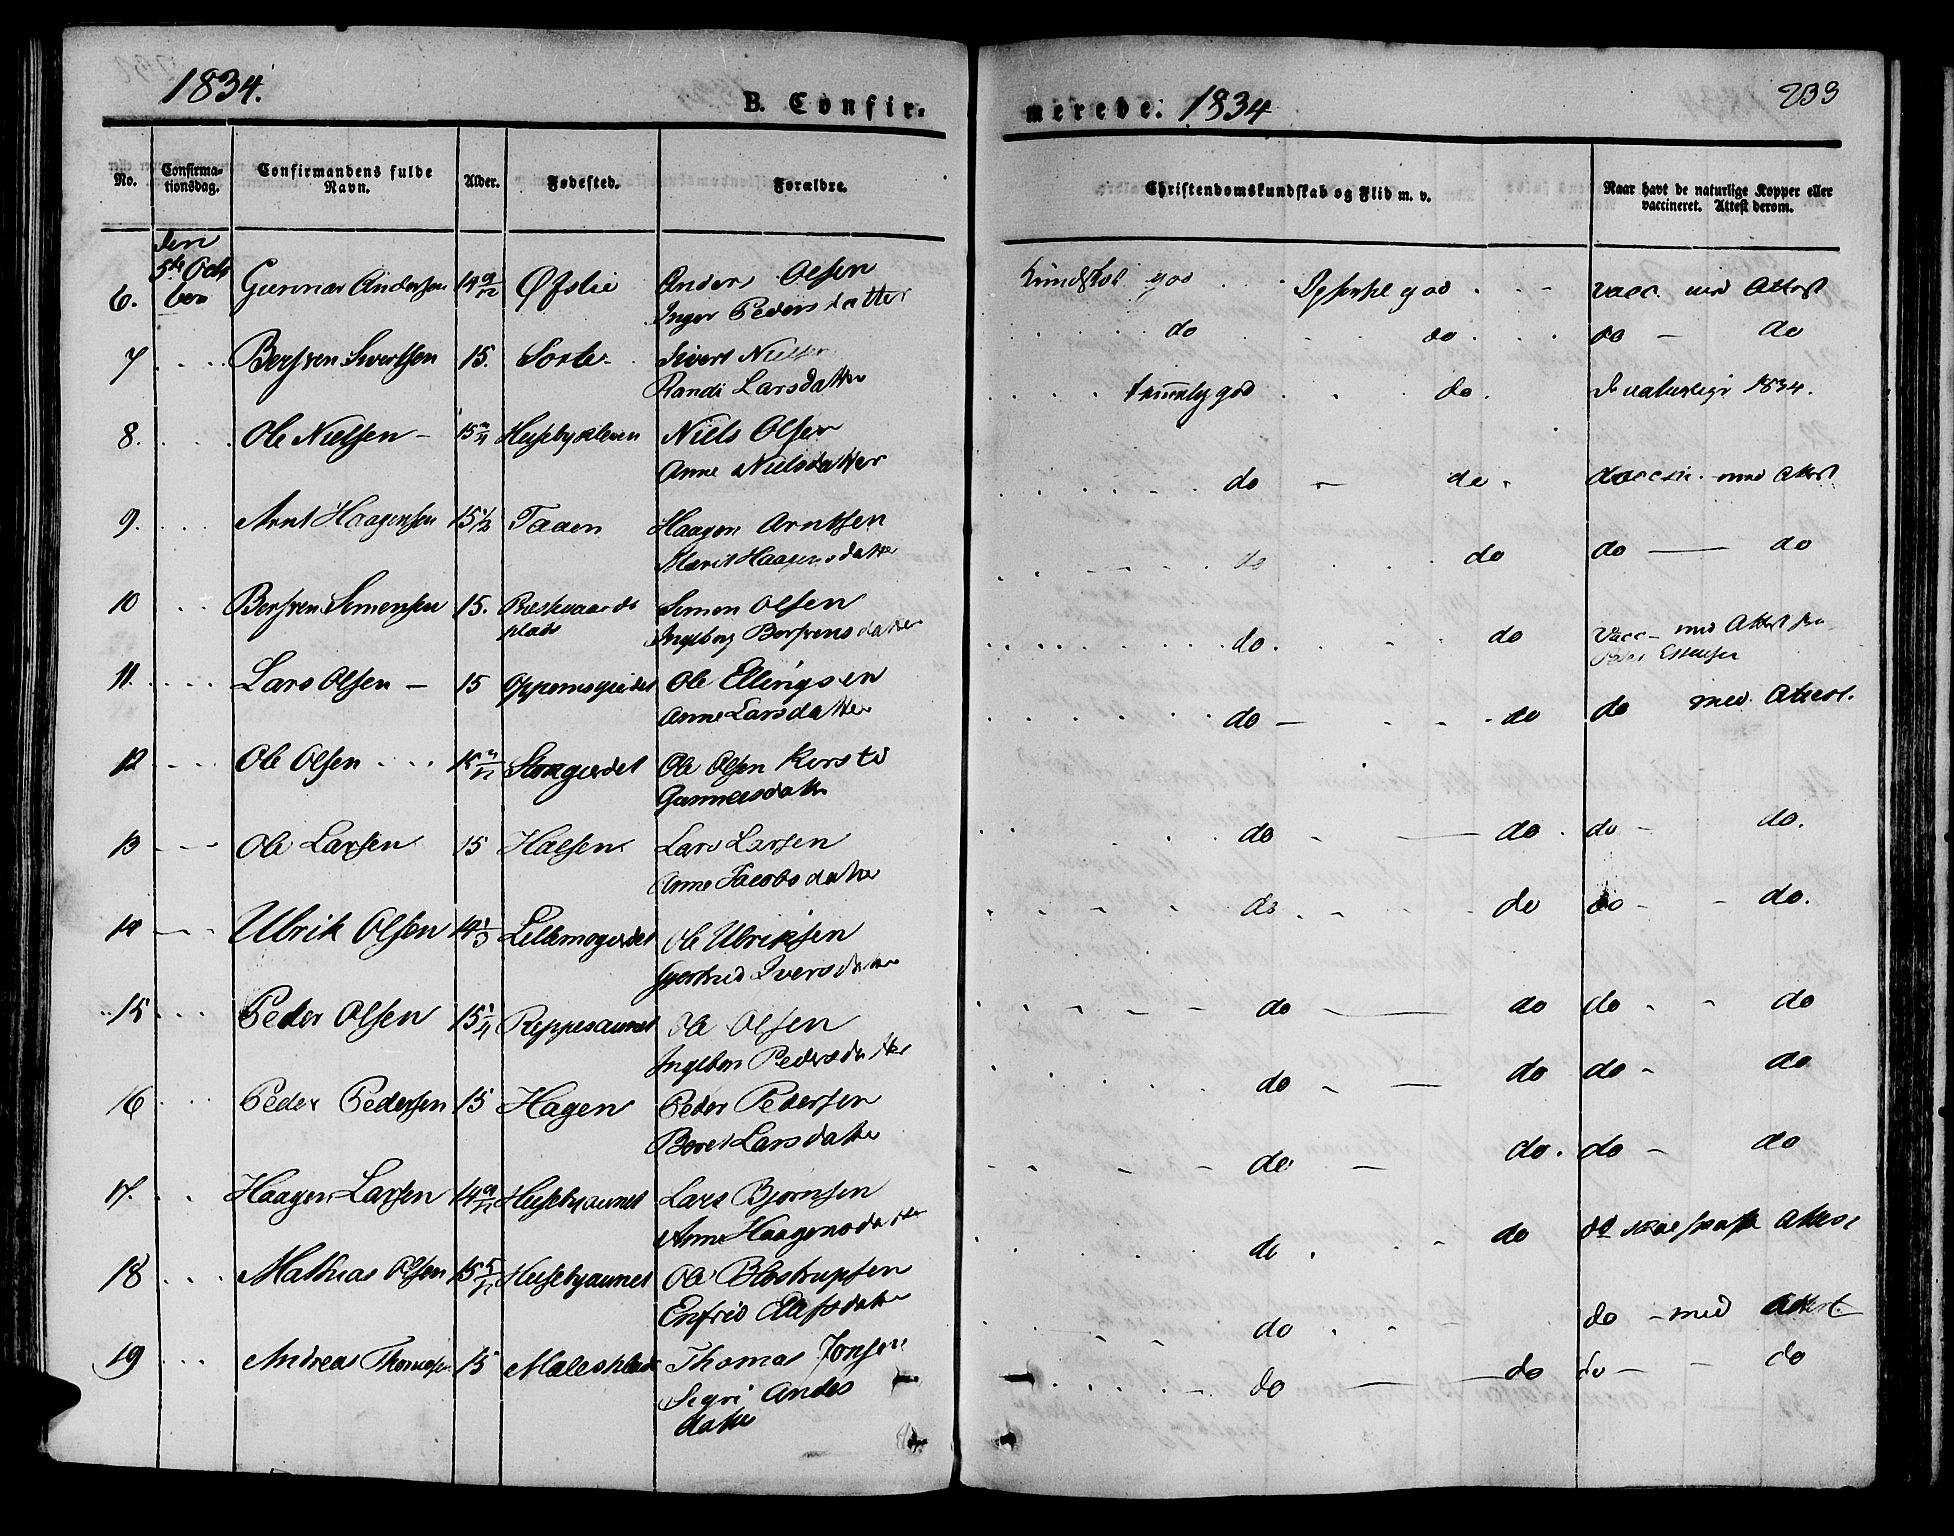 1834.
B. Confir-
merede. 1834
233
No.
Confirma-
tionsdag.
Confirmandens fulde
Navn.
Alder.
Fødested.
Forældre.
Christendomskundskab og Flid m. v.
Naar havt de naturlige Kopper eller
vaccineret. Attest derom.
den
5te Octo
ber
6. Gunnar Andersen 14 9/12 Øfstie Anders Olsen
Inger Pedersdatter
god god vacc. med Attest
7 Bersven Sivertsen 15. Sorte Sivert Nielsen
Randi Larsdatter
do do do - do
8. Ole Nielsen - 15 3/4 Husebykleven Niels Olsen
Anne Nielsdatter
temmelig god do. de naturlige 1834.
9. Arnt Haagensen 15 1/2 Taaen Haagen Arntsen
Marit Haagensdatter
do - do vaccin. med Attest
10 Bersven Simensen 15. Præstegaards
plads
Simon Olsen
Ingeborg Bersvensdatter
do do do - do
11. Lars Olsen - 15 Ole Ellingsen
Anne Larsdatter
do. do Vacc - med Attest fra
Peder
12 Ole Olsen Ole Olsen Kersti
Gunnersdatter
do - do do med Attest.
13 Ole Larsen 15 Halsen Lars Larsen
Anne Jacobsdatter
do - do. do - do.
14 Ulrik Olsen 14 1/3 Lillemogierdet Ole Ulriksen
Gjertrud Iversdatter
do. - do do - - do.
15 Peder Olsen 15 1/4 Reppesaunet Ole Olsen
Ingebor Pedersdatter
do do do - - do
16 Peder Pedersen 15 Hagen Peder Pedersen
Beret Larsdatter
do - do do - do
17. Haagen Larsen 14 Husebyaunet Lars Bjørnsen
Anne Haagensdatter
do - do. do - do
18 Mathias Olsen 15 Husebyaunet Ole Blostrupsen
Enfrid Ellefsdatter
do do do skal skaffe Attest
19 Andreas Thomasen 15 Thomas Jonsen
Segri Anders
datter
do do - med Attest
do do do - - do